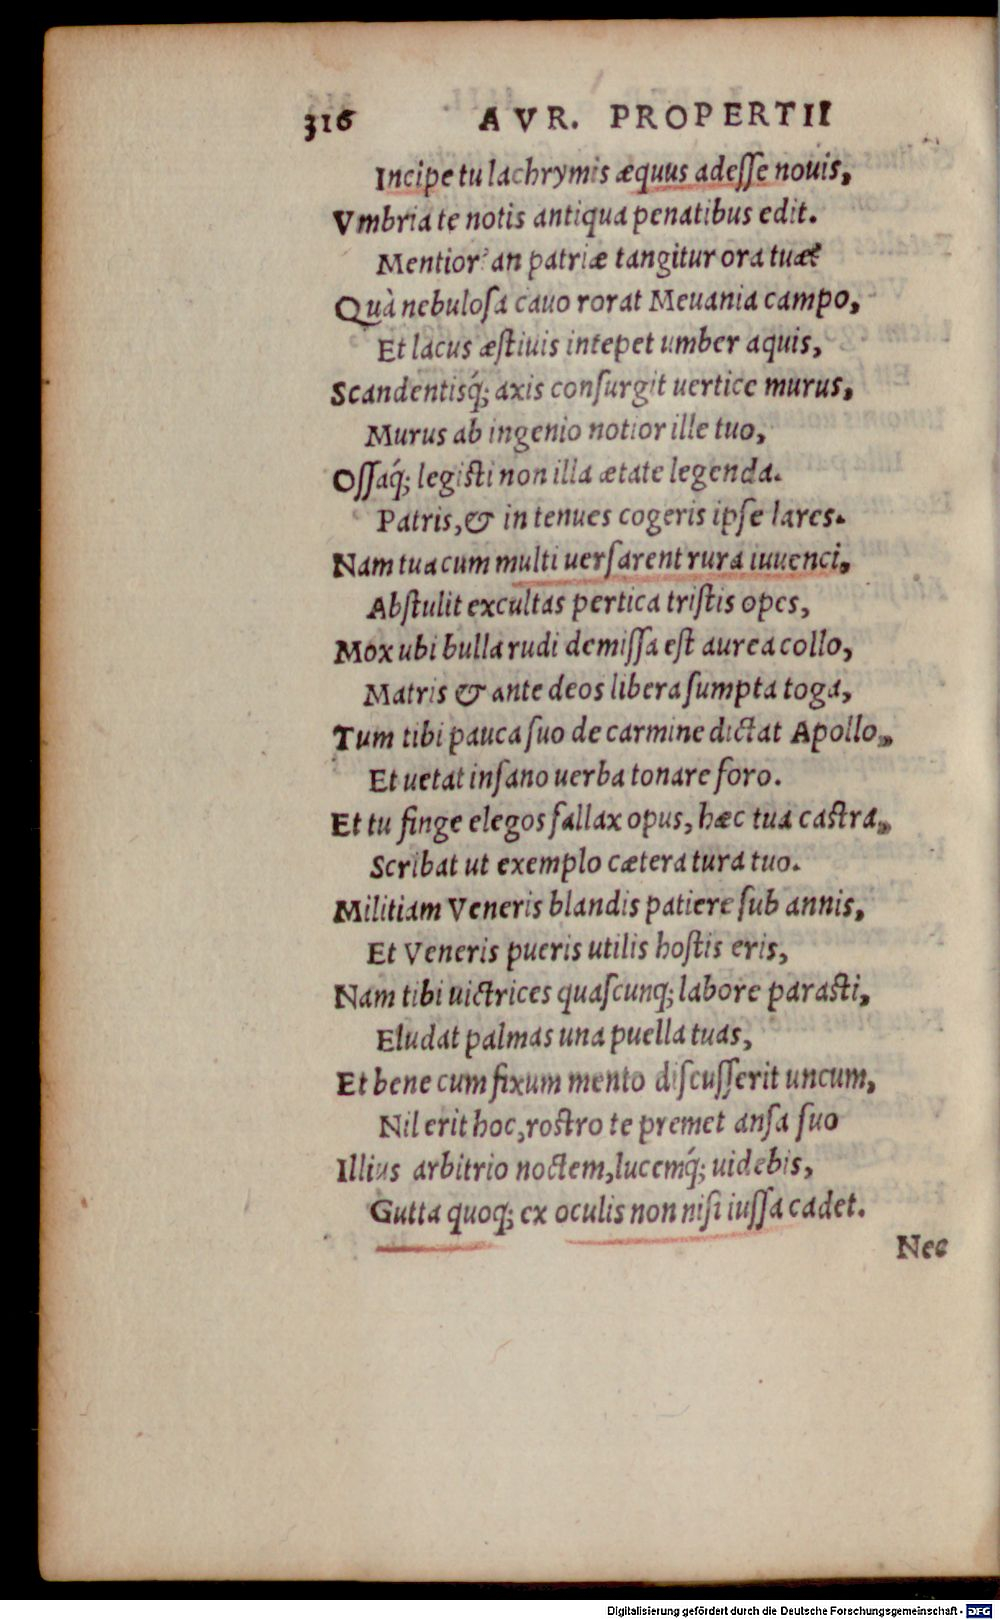 316 AVR. PROPERTII
Incipe tu lachrymis æquus adesse nouis,
Vmbria te notis antiqua penatibus edit.
Mentior? an patriæ tangitur ora tuæ?
Quà nebulosa cauo rorat Meuania campo,
Et lacus æstiuis intepet umber aquis,
Scandentisq́; axis consurgit uertice murus,
Murus ab ingenio notior ille tuo,
Ossaq́; legisti non illa ætate legenda.
Patris, & in tenues cogeris ipse lares.
Nam tua cum multi uersarent rura iuuenci,
Abstulit excultas pertica tristis opes,
Mox ubi bulla rudi demissa est aurea collo,
Matris & ante deos libera sumpta toga,
Tum tibi pauca suo de carmine dictat Apollo,
Et uetat insano uerba tonare foro.
Et tu finge elegos fallax opus, hæc tua castra,
Scribat ut exemplo cætera tura tuo.
Militiam Veneris blandis patiere sub annis,
Et Veneris pueris utilis hostis eris,
Nam tibi uictrices quascunq; labore parasti,
Eludat palmas una puella tuas,
Et bene cum fixum mento discusserit uncum,
Nil erit hoc, rostro te premet ansa suo
Illius arbitrio noctem, lucemq́; uidebis,
Gutta quoq; ex oculis non nisi iussa cadet.
Nec
Digitalisierung gefördert durch die Deutsche Forschungsgemeinschaft - DFG